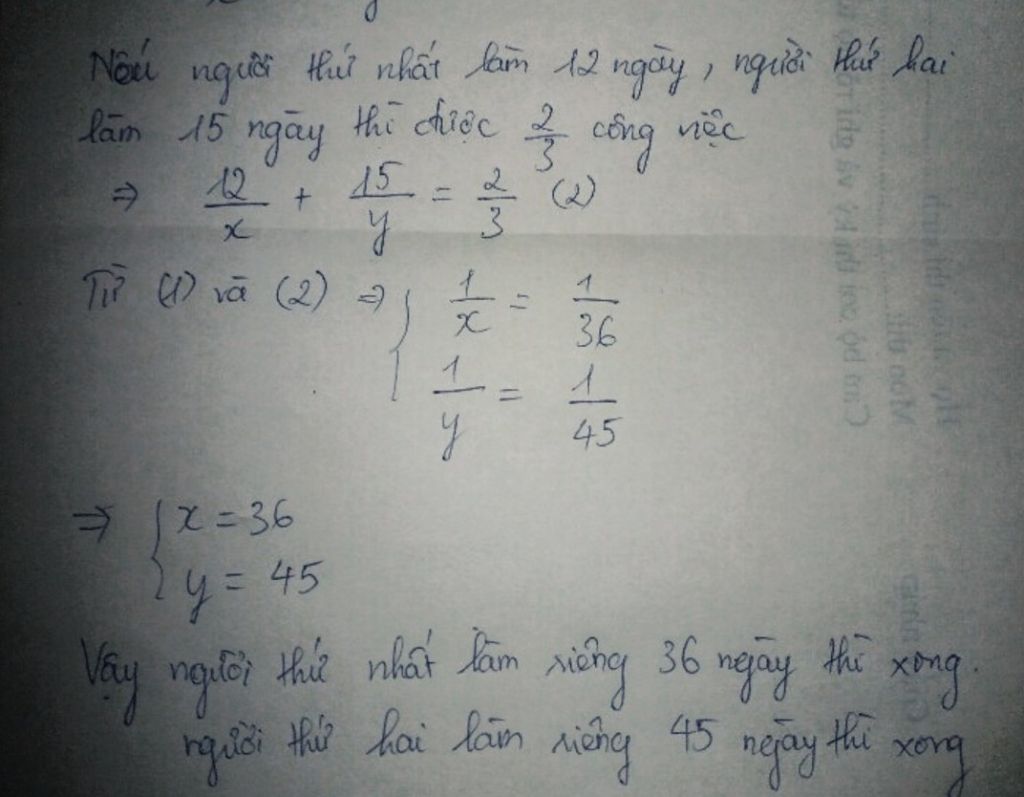 Nếu người thứ nhất làm 12 ngày, người thứ hai
làm 15 ngày thì được 2/3 công việc
⇒ 12/x + 15/y = 2/3 (2)
Từ (1) và (2) ⇒ { 1/x = 1/36
1/y = 1/45
⇒ { x = 36
y = 45
Vậy người thứ nhất làm riêng 36 ngày thì xong.
người thứ hai làm riêng 45 ngày thì xong